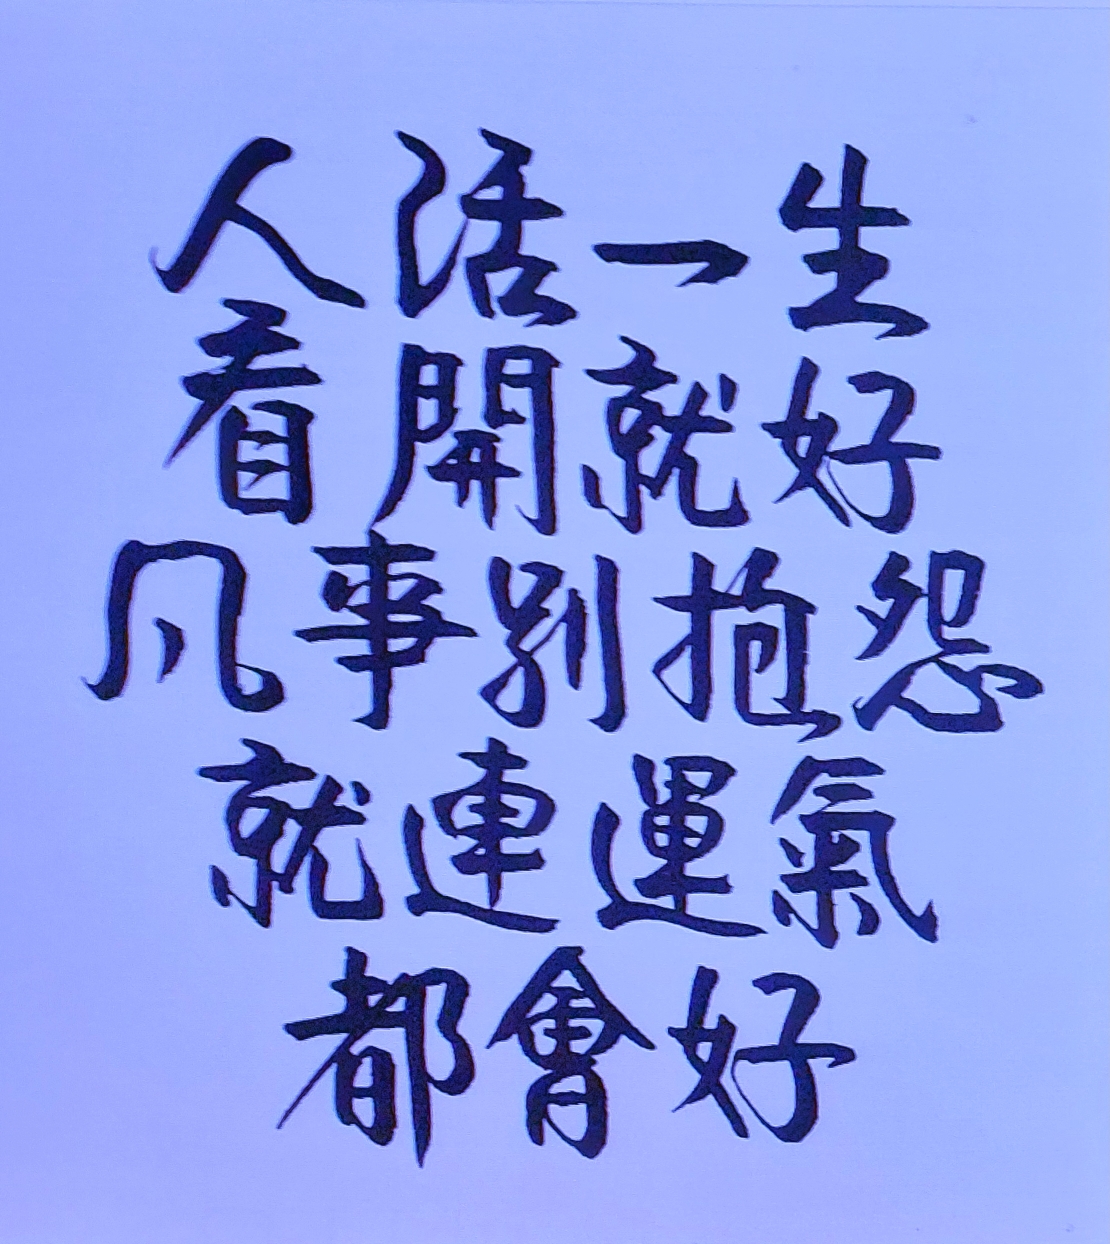 人活一生
看開就好
凡事別抱怨
就連運氣
都會好